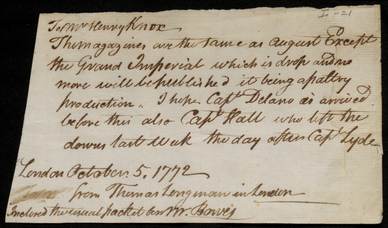 I-21
To Mr Henry Knox
The magazines are the same as August Except
the Grand Imperial which is drop and no
more will be published it being a paltry
production. I hope Capt Delano is arrived
before this also Capt Hall who left the
downs last Week the day after Capt Lyde
London October 5, 1772
from Thomas Longman in London
Inclosed the usual packet for Mr. Bowes